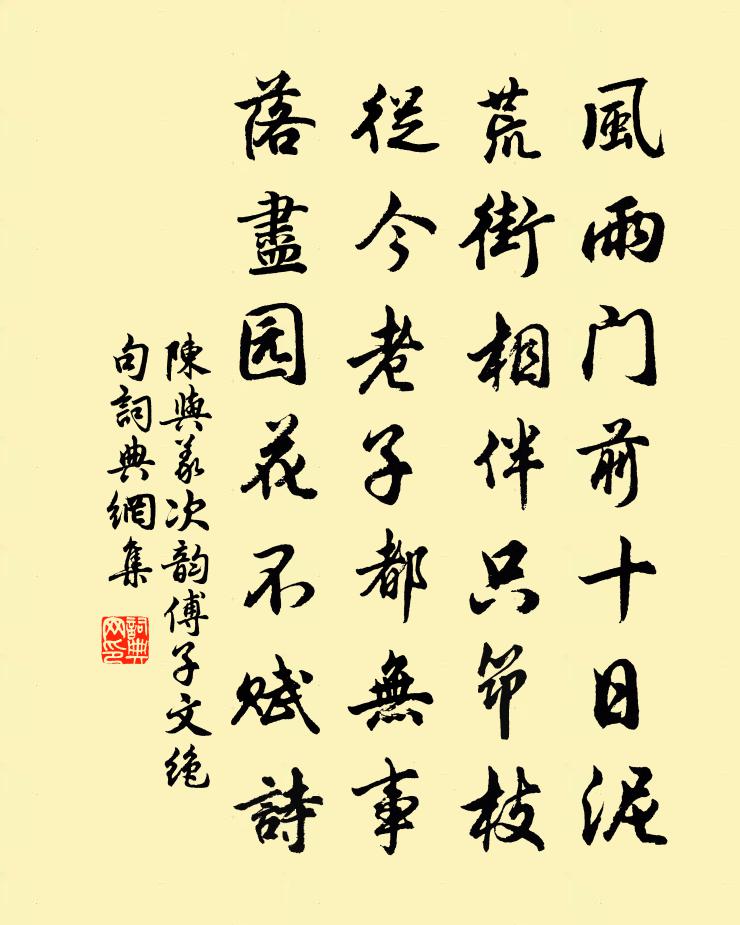 風雨门前十日泥
荒街相伴只笻枝
從今老子都無事
落盡园花不赋詩
陳與義次韵傅子文絶
句詞典網集
詞典
网印